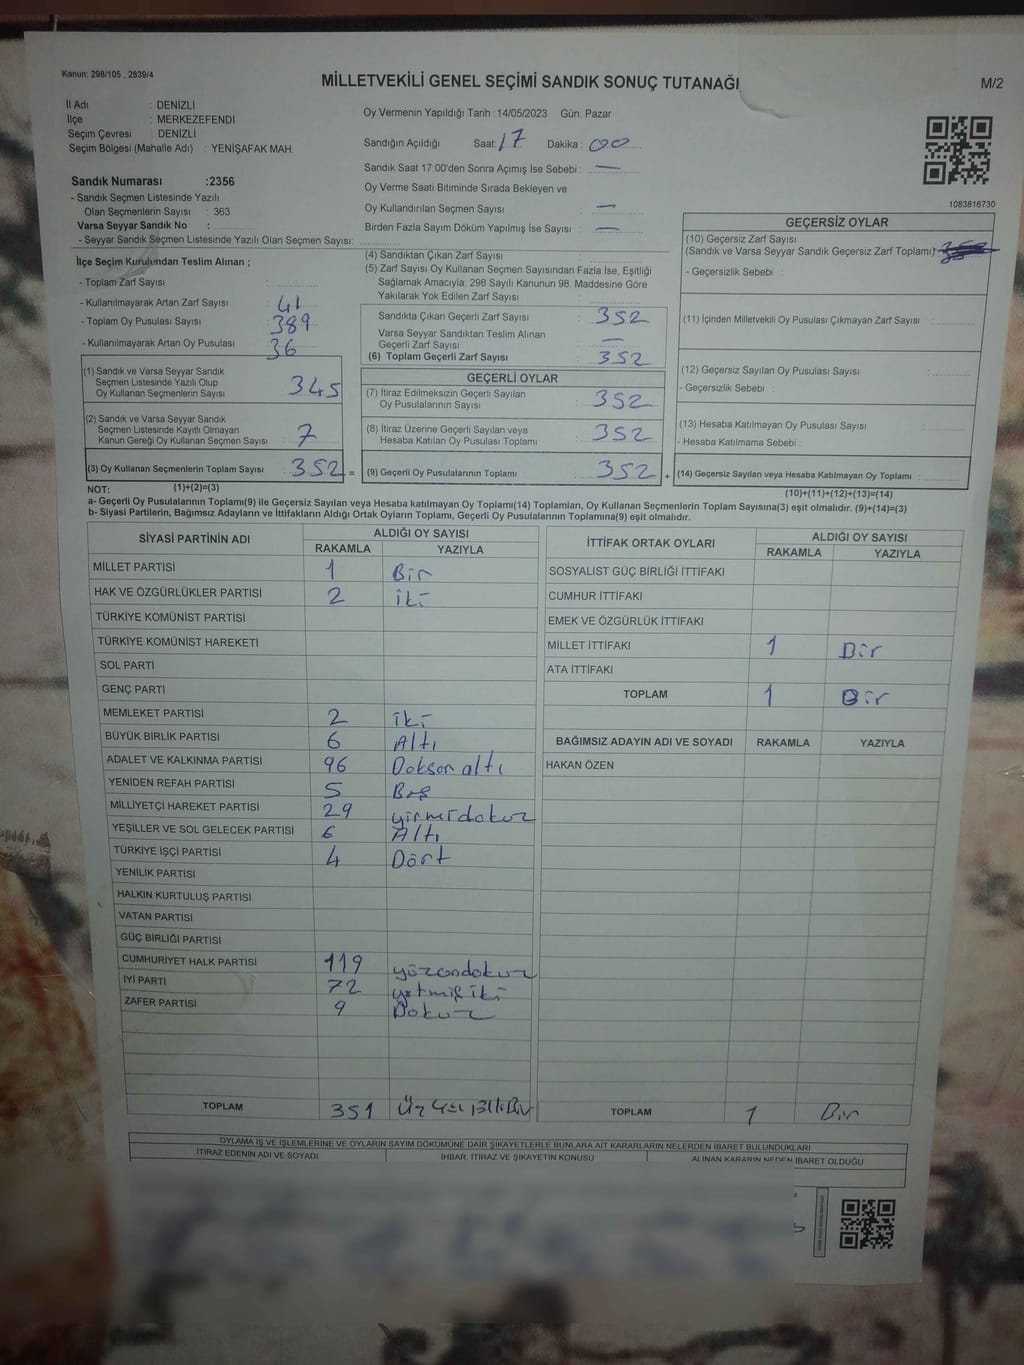 Kanun: 298/105 , 2839/4
MİLLETVEKİLİ GENEL SEÇİMİ SANDIK SONUÇ TUTANAĞI
M/2
İl Adı : DENİZLİ
İlçe : MERKEZEFENDİ
Seçim Çevresi : DENİZLİ
Seçim Bölgesi (Mahalle Adı) : YENİŞAFAK MAH.
Sandık Numarası :2356
- Sandık Seçmen Listesinde Yazılı
Olan Seçmenlerin Sayısı : 363
Varsa Seyyar Sandık No :
- Seyyar Sandık Seçmen Listesinde Yazılı Olan Seçmen Sayısı:
Oy Vermenin Yapıldığı Tarih :14/05/2023 Gün: Pazar
Sandığın Açıldığı Saat 17 Dakika : 00
Sandık Saat 17:00'den Sonra Açımış İse Sebebi : —
Oy Verme Saati Bitiminde Sırada Bekleyen ve
Oy Kullandırılan Seçmen Sayısı : —
Birden Fazla Sayım Döküm Yapılmış İse Sayısı : —
1083816730
İlçe Seçim Kurulundan Teslim Alınan ;
- Toplam Zarf Sayısı :
- Kullanılmayarak Artan Zarf Sayısı : 41
- Toplam Oy Pusulası Sayısı : 389
- Kullanılmayarak Artan Oy Pusulası : 36
(1) Sandık ve Varsa Seyyar Sandık
Seçmen Listesinde Yazılı Olup
Oy Kullanan Seçmenlerin Sayısı : 345
(2) Sandık ve Varsa Seyyar Sandık
Seçmen Listesinde Kayıtlı Olmayan
Kanun Gereği Oy Kullanan Seçmen Sayısı : 7
(3) Oy Kullanan Seçmenlerin Toplam Sayısı : 352 =
(4) Sandıktan Çıkan Zarf Sayısı :
(5) Zarf Sayısı Oy Kullanan Seçmen Sayısından Fazla İse, Eşitliği
Sağlamak Amacıyla; 298 Sayılı Kanunun 98. Maddesine Göre
Yakılarak Yok Edilen Zarf Sayısı :
Sandıkta Çıkan Geçerli Zarf Sayısı : 352
Varsa Seyyar Sandıktan Teslim Alınan
Geçerli Zarf Sayısı : —
(6) Toplam Geçerli Zarf Sayısı : 352
GEÇERLİ OYLAR
(7) İtiraz Edilmeksizin Geçerli Sayılan
Oy Pusulalarının Sayısı : 352
(8) İtiraz Üzerine Geçerli Sayılan veya
Hesaba Katılan Oy Pusulası Toplamı : 352
(9) Geçerli Oy Pusulalarının Toplamı : 352 +
GEÇERSİZ OYLAR
(10) Geçersiz Zarf Sayısı
(Sandık ve Varsa Seyyar Sandık Geçersiz Zarf Toplamı) :
- Geçersizlik Sebebi :
(11) İçinden Milletvekili Oy Pusulası Çıkmayan Zarf Sayısı :
(12) Geçersiz Sayılan Oy Pusulası Sayısı :
- Geçersizlik Sebebi :
(13) Hesaba Katılmayan Oy Pusulası Sayısı :
- Hesaba Katılmama Sebebi :
(14) Geçersiz Sayılan veya Hesaba Katılmayan Oy Toplamı :
NOT: (1)+(2)=(3) (10)+(11)+(12)+(13)=(14)
a- Geçerli Oy Pusulalarının Toplamı(9) ile Geçersiz Sayılan veya Hesaba katılmayan Oy Toplamı(14) Toplamları, Oy Kullanan Seçmenlerin Toplam Sayısına(3) eşit olmalıdır. (9)+(14)=(3)
b- Siyasi Partilerin, Bağımsız Adayların ve İttifakların Aldığı Ortak Oyların Toplamı, Geçerli Oy Pusulalarının Toplamına(9) eşit olmalıdır.
SİYASİ PARTİNİN ADI ALDIĞI OY SAYISI
RAKAMLA YAZIYLA
MİLLET PARTİSİ 1 Bir
HAK VE ÖZGÜRLÜKLER PARTİSİ 2 iki
TÜRKİYE KOMÜNİST PARTİSİ
TÜRKİYE KOMÜNİST HAREKETİ
SOL PARTİ
GENÇ PARTİ
MEMLEKET PARTİSİ 2 iki
BÜYÜK BİRLİK PARTİSİ 6 Altı
ADALET VE KALKINMA PARTİSİ 96 Doksan altı
YENİDEN REFAH PARTİSİ 5 Beş
MİLLİYETÇİ HAREKET PARTİSİ 29 yirmidokuz
YEŞİLLER VE SOL GELECEK PARTİSİ 6 Altı
TÜRKİYE İŞÇİ PARTİSİ 4 Dört
YENİLİK PARTİSİ
HALKIN KURTULUŞ PARTİSİ
VATAN PARTİSİ
GÜÇ BİRLİĞİ PARTİSİ
CUMHURİYET HALK PARTİSİ 119 yüzondokuz
İYİ PARTİ 72 yetmiş iki
ZAFER PARTİSİ 9 Dokuz
TOPLAM 351
İTTİFAK ORTAK OYLARI ALDIĞI OY SAYISI
RAKAMLA YAZIYLA
SOSYALİST GÜÇ BİRLİĞİ İTTİFAKI
CUMHUR İTTİFAKI
EMEK VE ÖZGÜRLÜK İTTİFAKI
MİLLET İTTİFAKI 1 Bir
ATA İTTİFAKI
TOPLAM 1 Bir
BAĞIMSIZ ADAYIN ADI VE SOYADI RAKAMLA YAZIYLA
HAKAN ÖZEN
TOPLAM 1 Bir
OYLAMA İŞ VE İŞLEMLERİNE VE OYLARIN SAYIM DÖKÜMÜNE DAİR ŞİKAYETLERLE BUNLARA AİT KARARLARIN NELERDEN İBARET BULUNDUKLARI
İTİRAZ EDENİN ADI VE SOYADI İHBAR, İTİRAZ VE ŞİKAYETİN KONUSU ALINAN KARARIN NEDEN İBARET OLDUĞU